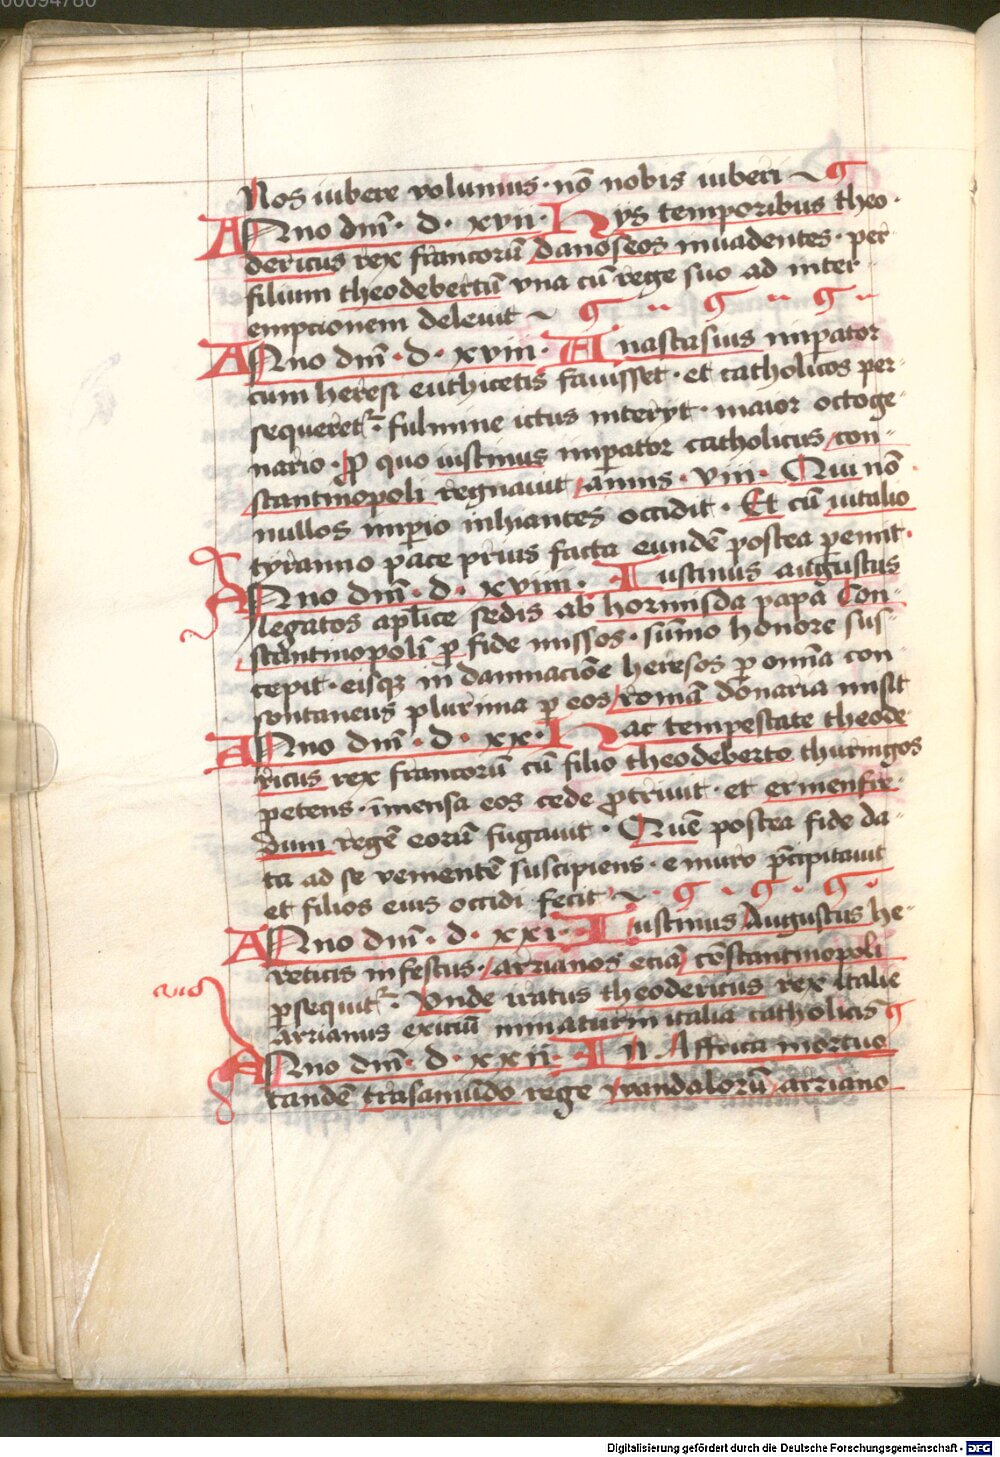 00094780
Nos iubere volumus · nō nobis iuberi
Anno dm̄ · d · xvii · Hys temporibus theo
dericus rex francorū danos eos inuadentes · per
filium theodebertū vna cū rege suo ad inter
empcionem deleuit
Anno dm̄ · d · xviii · Anastasius impator
cum heresi euthicetis fauisset · et catholicos per
sequeret᷑ · fulmine ictus interyt · maior octoge
nario · ꝓ quo iustinus impator catholicus con
stantinopoli regnauit annis · viii · Qui nō
nullos impio inhiantes occidit · Et cū vitalio
tyranno pace prius facta eundē postea pemit ·
Anno dm̄ · d · xviiii · Iustinus augustus
legatos aplice sedis ab hormisda papa Con
stantinopolī ꝓ fide missos · sūmo honore sus
cepit · eisqꝫ in damnacōe heresos ꝑ omīa con
sontaneus plurima ꝑ eos romā donaria misit
Anno dm̄ · d · xx · Hac tempestate theode
ricus rex francorū cū filio theodeberto thuringos
petens · īmensa eos cede ꝓtriuit · et ermenfre
dum regē eorum fugauit · Quē postea fide da
ta ad se venientē suscipiens · e muro p̄cipitauit
et filios eius occidi fecit
Anno dm̄ · d · xxi · Iustinus Augustus he
reticis infestus · arrianos etiā cōstantinopoli
ꝑsequit᷑ · Vnde iratus theodericus rex Italie
arrianus exiciū minatur in italia catholicis
Anno dm̄ · d · xxii · In Affrica mortuo
tandē trasamūdo rege wandalorū arriano
Digitalisierung gefördert durch die Deutsche Forschungsgemeinschaft - DFG